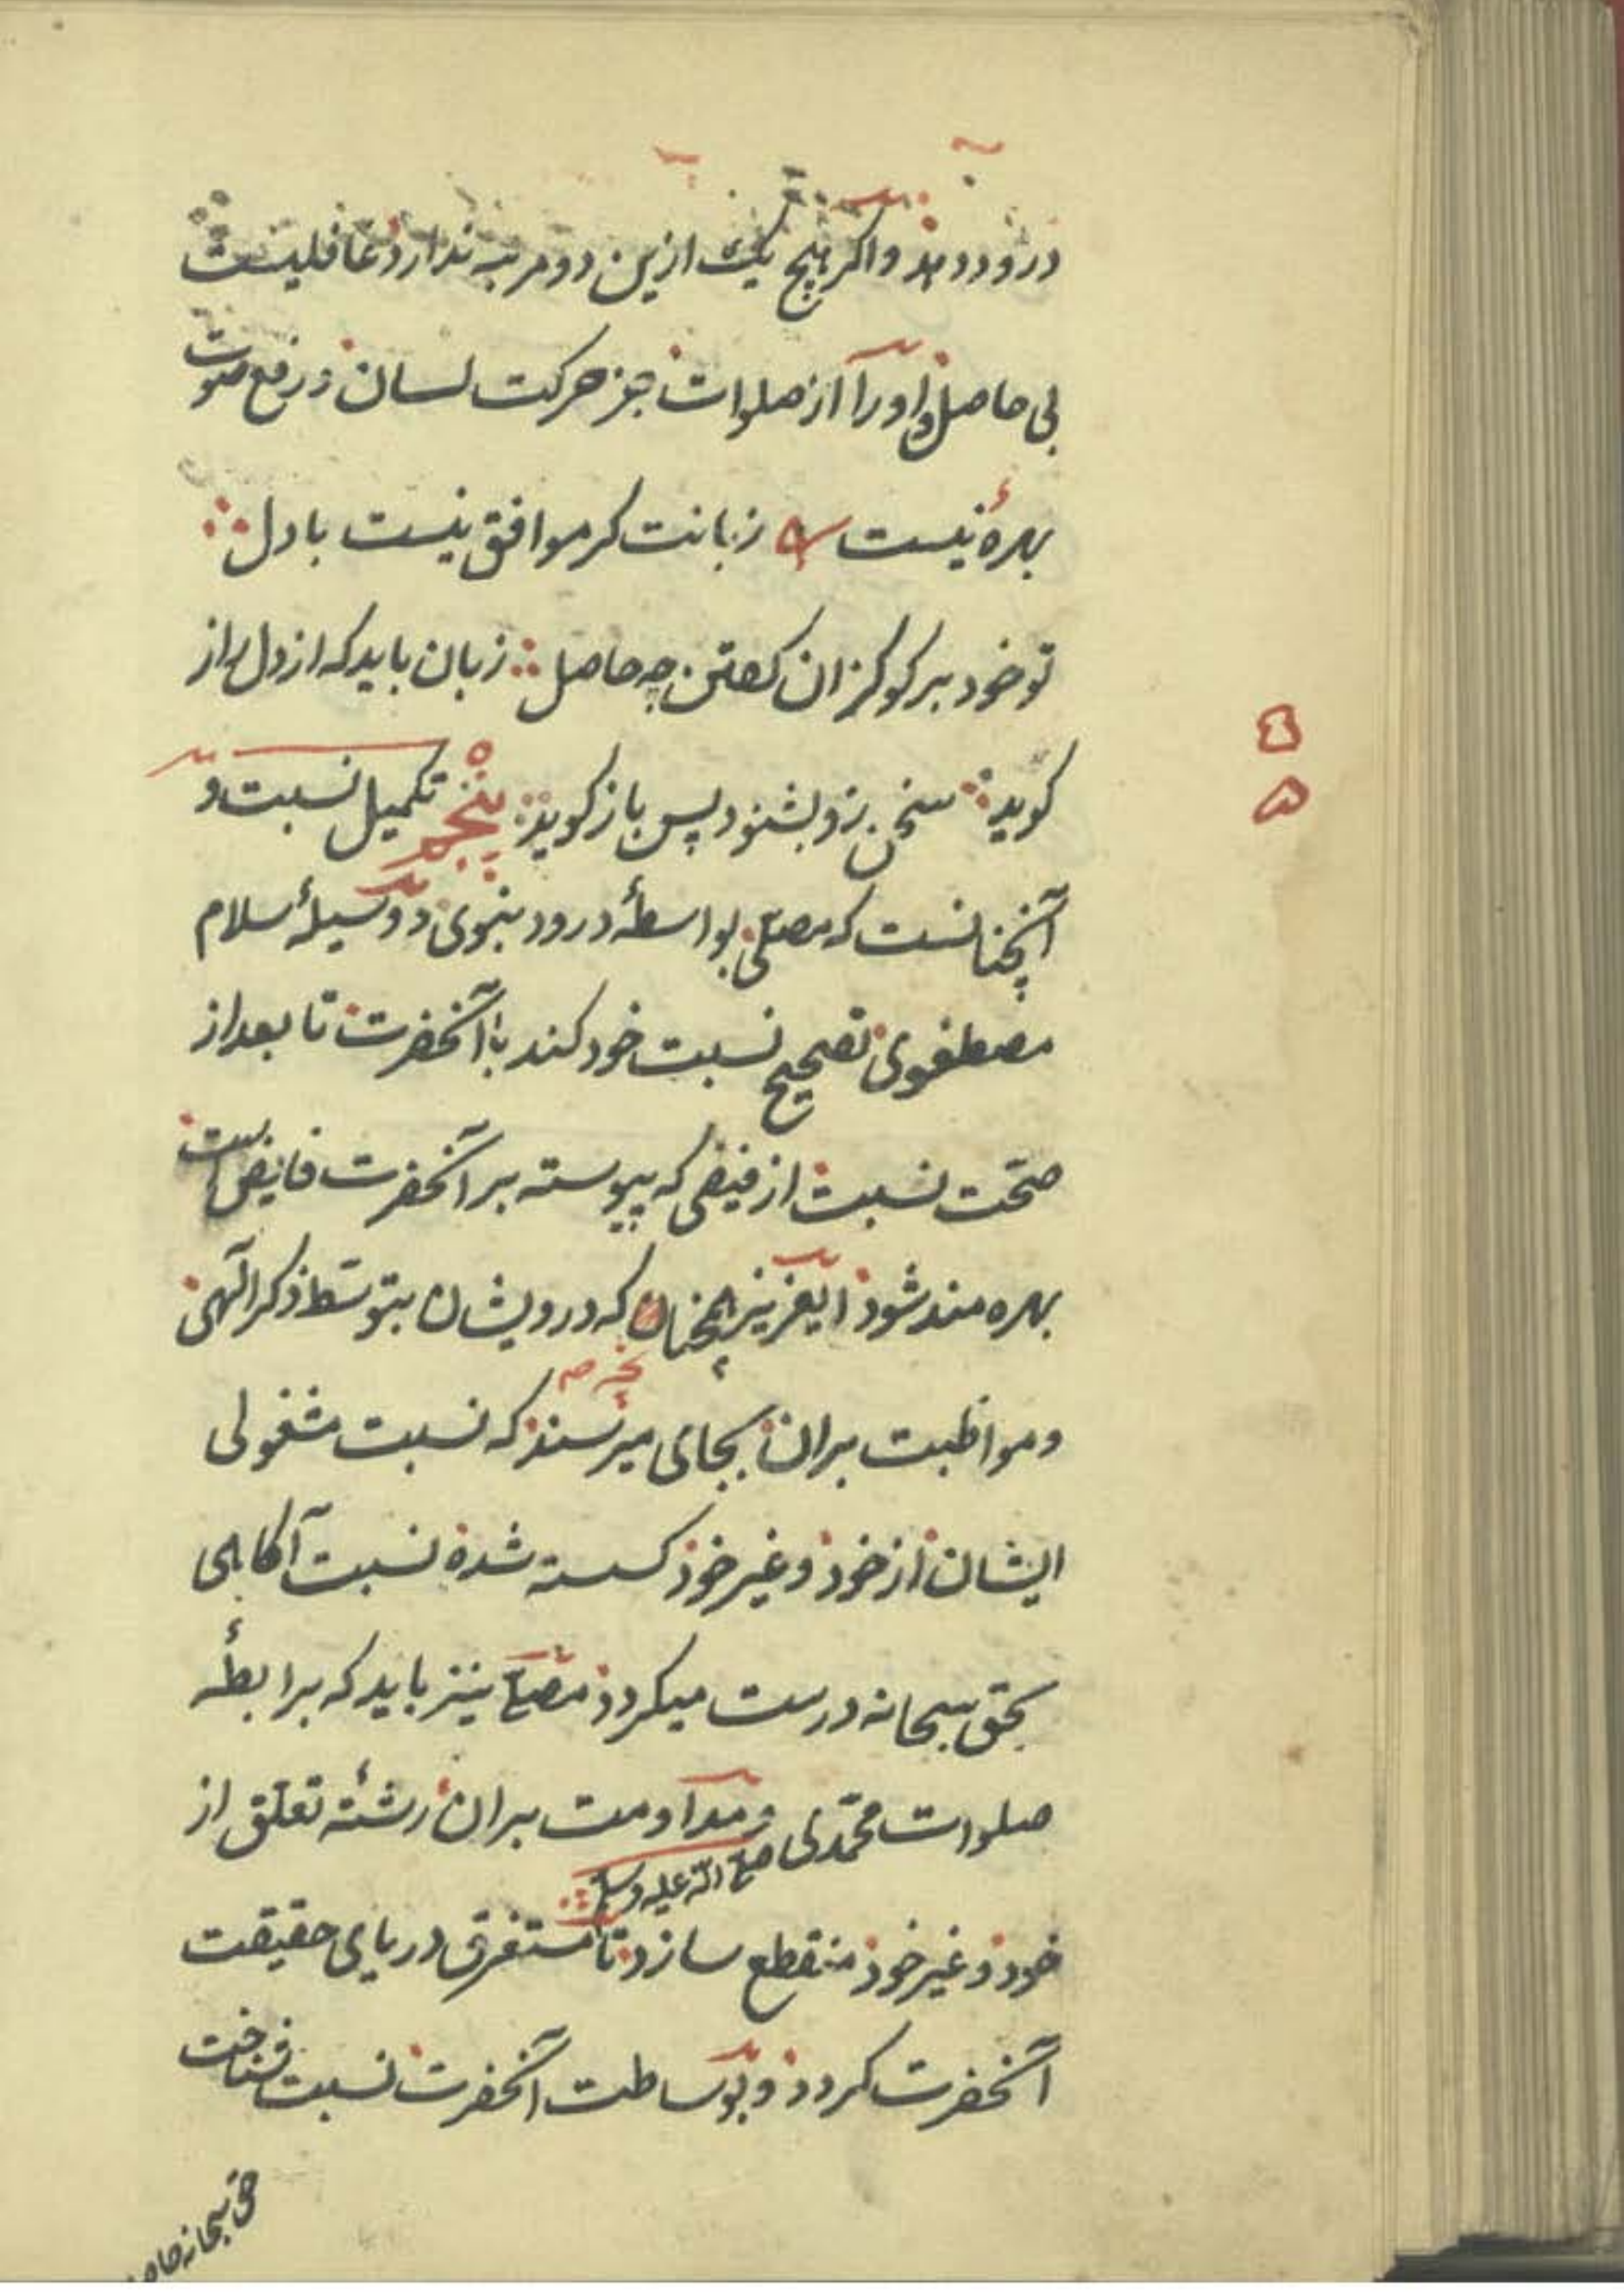 درود دهد و اکر هیچ یک ازین دو مرتبه ندارد غافلیست
بی حاصل و اورا از صلوات جز حرکت لسان و رفع صوت
بهرهٔ نیست زبانت کر موافق نیست با دل
تو خود بر کو کزان کفتن چه حاصل زبان باید که از دل راز
کوید سخن زو بشنود پس باز کوید پنجم تکمیل نسبت و
آنچنانست که مصلّی بواسطهٔ درود نبوی و وسیلهٔ سلام
مصطفوی تصحیح نسبت خود کند با آنحضرت تا بعد از
صحّت نسبت از فیضی که پیوسته بر آنحضرت فایض است
بهره مند شود ایعزیز همچنان که درویشان بتوسّط ذکر الٓهی
و مواظبت بران بجای میرسند که نسبت مشغولی
ایشان از خود و غیر خود کسسته شده نسبت آکاهی
بحق سبحانه درست میکردد مصلّی نیز باید که برابطهٔ
صلوات محمّدی صلی الله علیه وسلم و مداومت بران رشتهٔ تعلّق از
خود و غیر خود منقطع سازد تا مستغرق دریای حقیقت
آنحضرت کردد و بوساطت آنحضرت نسبت شناخت
حق سبحانه
۵